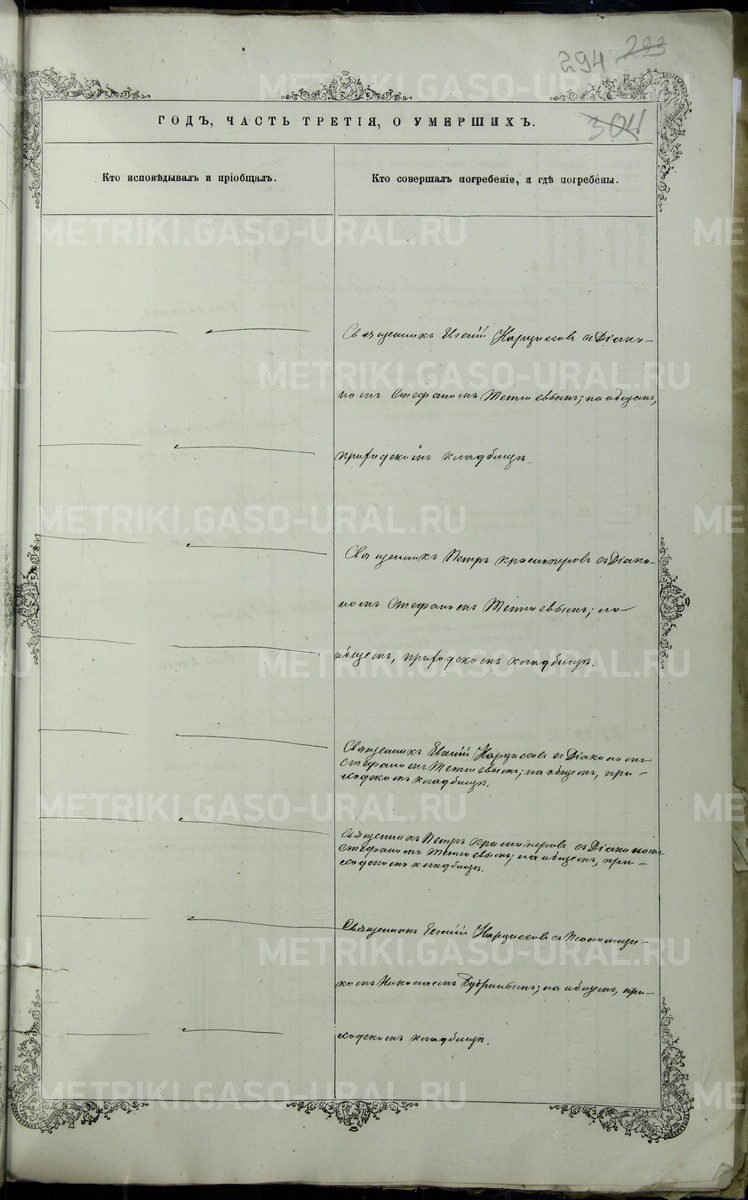 294 293
304
ГОДЪ, ЧАСТЬ ТРЕТІЯ, О УМЕРШИХЪ.
Кто исповѣдывалъ и пріобщалъ.
Кто совершалъ погребеніе, и гдѣ погребены.
Священникъ Евгеній Нарциссовъ съ Діако-
номъ Стефаномъ ; на общемъ,
приходскомъ кладбищѣ.
Священникъ Петръ Красноперовъ съ Діако-
номъ Стефаномъ ; на
общемъ, приходскомъ кладбищѣ.
Священникъ Евгеній Нарциссовъ съ Діакономъ
Стефаномъ ; на общемъ, при-
ходскомъ кладбищѣ.
Священникъ Петръ Красноперовъ съ Діакономъ
Стефаномъ ; на общемъ, при-
ходскомъ кладбищѣ.
Священникъ Евгеній Нарциссовъ съ Псаломщи-
комъ Николаемъ ; на общемъ, при-
ходскомъ кладбищѣ.
METRIKI.GASO-URAL.RU